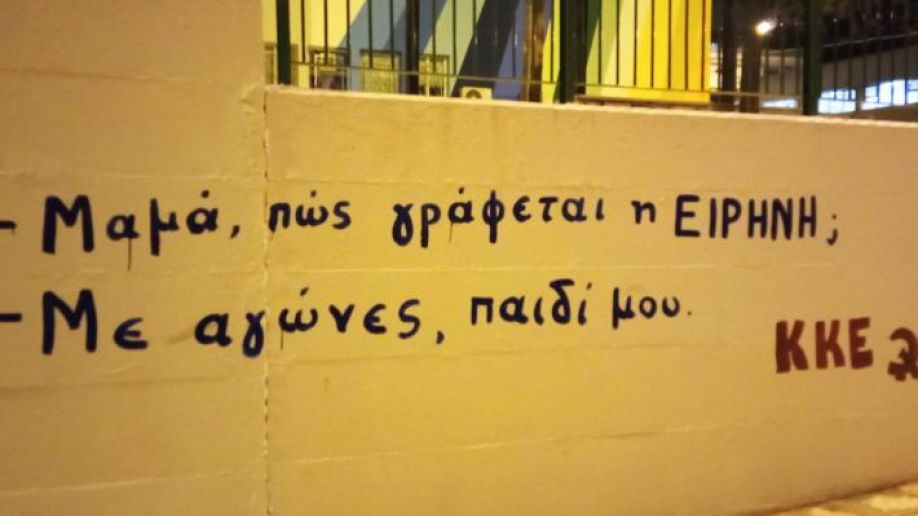 - Μαμά, πώς γράφεται η ΕΙΡΗΝΗ;
- Με αγώνες, παιδί μου.
ΚΚΕ